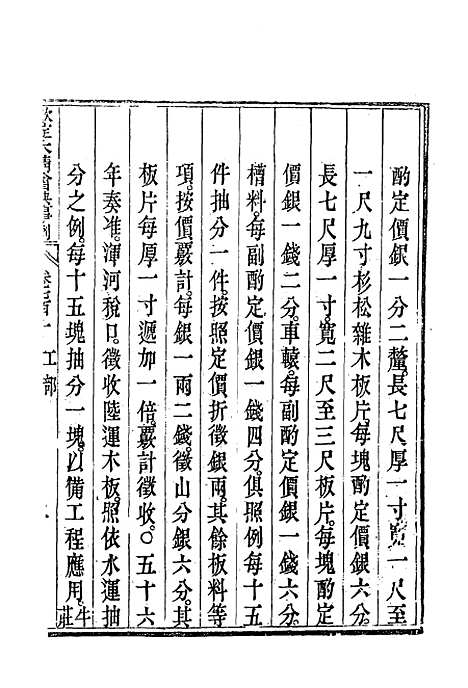 酌定價銀一分二釐。長七尺厚一寸寬一尺至
一尺九寸杉松雜木板片。每塊酌定價銀六分。
長七尺厚一寸。寬二尺至三尺板片。每塊酌定
價銀一錢二分。車轅。每副酌定價銀一錢六分。
槽料。每副酌定價銀一錢四分。俱照例每十五
件抽分一件。按照定價折徵銀兩。其餘板料等
項。按價覈計。每銀一兩二錢。徵山分銀六分。其
板片每厚一寸遞加一倍。覈計徵收。○五十六
年奏准。渾河稅口。徵收陸運木板。照依水運抽
分之例。每十五塊抽分一塊。以備工程應用。牛莊
欽定大清會典事例 工部